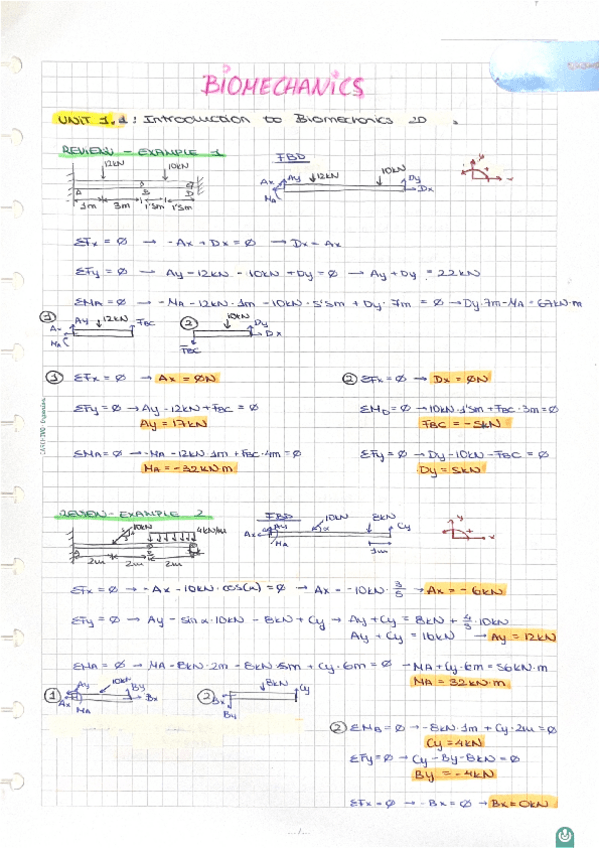 BIOMECHANICS
UNIT 1.1: Introduction to Biomechanics 2D
REVIEW - EXAMPLE 1
FBD
12kN 10kN
A B D
1m 3m 1'5m 1'5m
Ax Ay 12kN 10kN Dy Dx
MA
ΣFx = Ø → -Ax + Dx = Ø → Dx = Ax
ΣFy = Ø → Ay - 12kN - 10kN + Dy = Ø → Ay + Dy = 22kN
ΣMA = Ø → -MA - 12kN · 1m - 10kN · 5'5m + Dy · 7m = Ø → Dy · 7m - MA = 67kN·m
① Ay 12kN FBC ② 10kN Dy
Ax MA FBC Dx
① ΣFx = Ø → Ax = ØN
ΣFy = Ø → Ay - 12kN + FBC = Ø
Ay = 17kN
ΣMA = Ø → -MA - 12kN · 1m + FBC · 4m = Ø
MA = -32kN·m
② ΣFx = Ø → Dx = ØN
ΣMD = Ø → 10kN · 1'5m + FBC · 3m = Ø
FBC = -5kN
ΣFy = Ø → Dy - 10kN - FBC = Ø
Dy = 5kN
REVIEW - EXAMPLE 2
FBD
10kN 4kN/m
2m 2m 2m
Ay 10kN 8kN Cy
Ax α
MA 1m
ΣFx = Ø → -Ax - 10kN · cos(α) = Ø → Ax = -10kN · 3/5 → Ax = -6kN
ΣFy = Ø → Ay - sin α · 10kN - 8kN + Cy → Ay + Cy = 8kN + 4/5 · 10kN
Ay + Cy = 16kN → Ay = 12kN
ΣMA = Ø → MA - 8kN · 2m - 8kN · 5m + Cy · 6m = Ø → MA + Cy · 6m = 56kN·m
MA = 32kN·m
① Ay 10kN By ② 8kN Cy
Ax MA Bx Bx By
② ΣMB = Ø → -8kN · 1m + Cy · 2m = Ø
Cy = 4kN
ΣFy = Ø → Cy - By - 8kN = Ø
By = -4kN
ΣFx = Ø → -Bx = Ø → Bx = 0kN